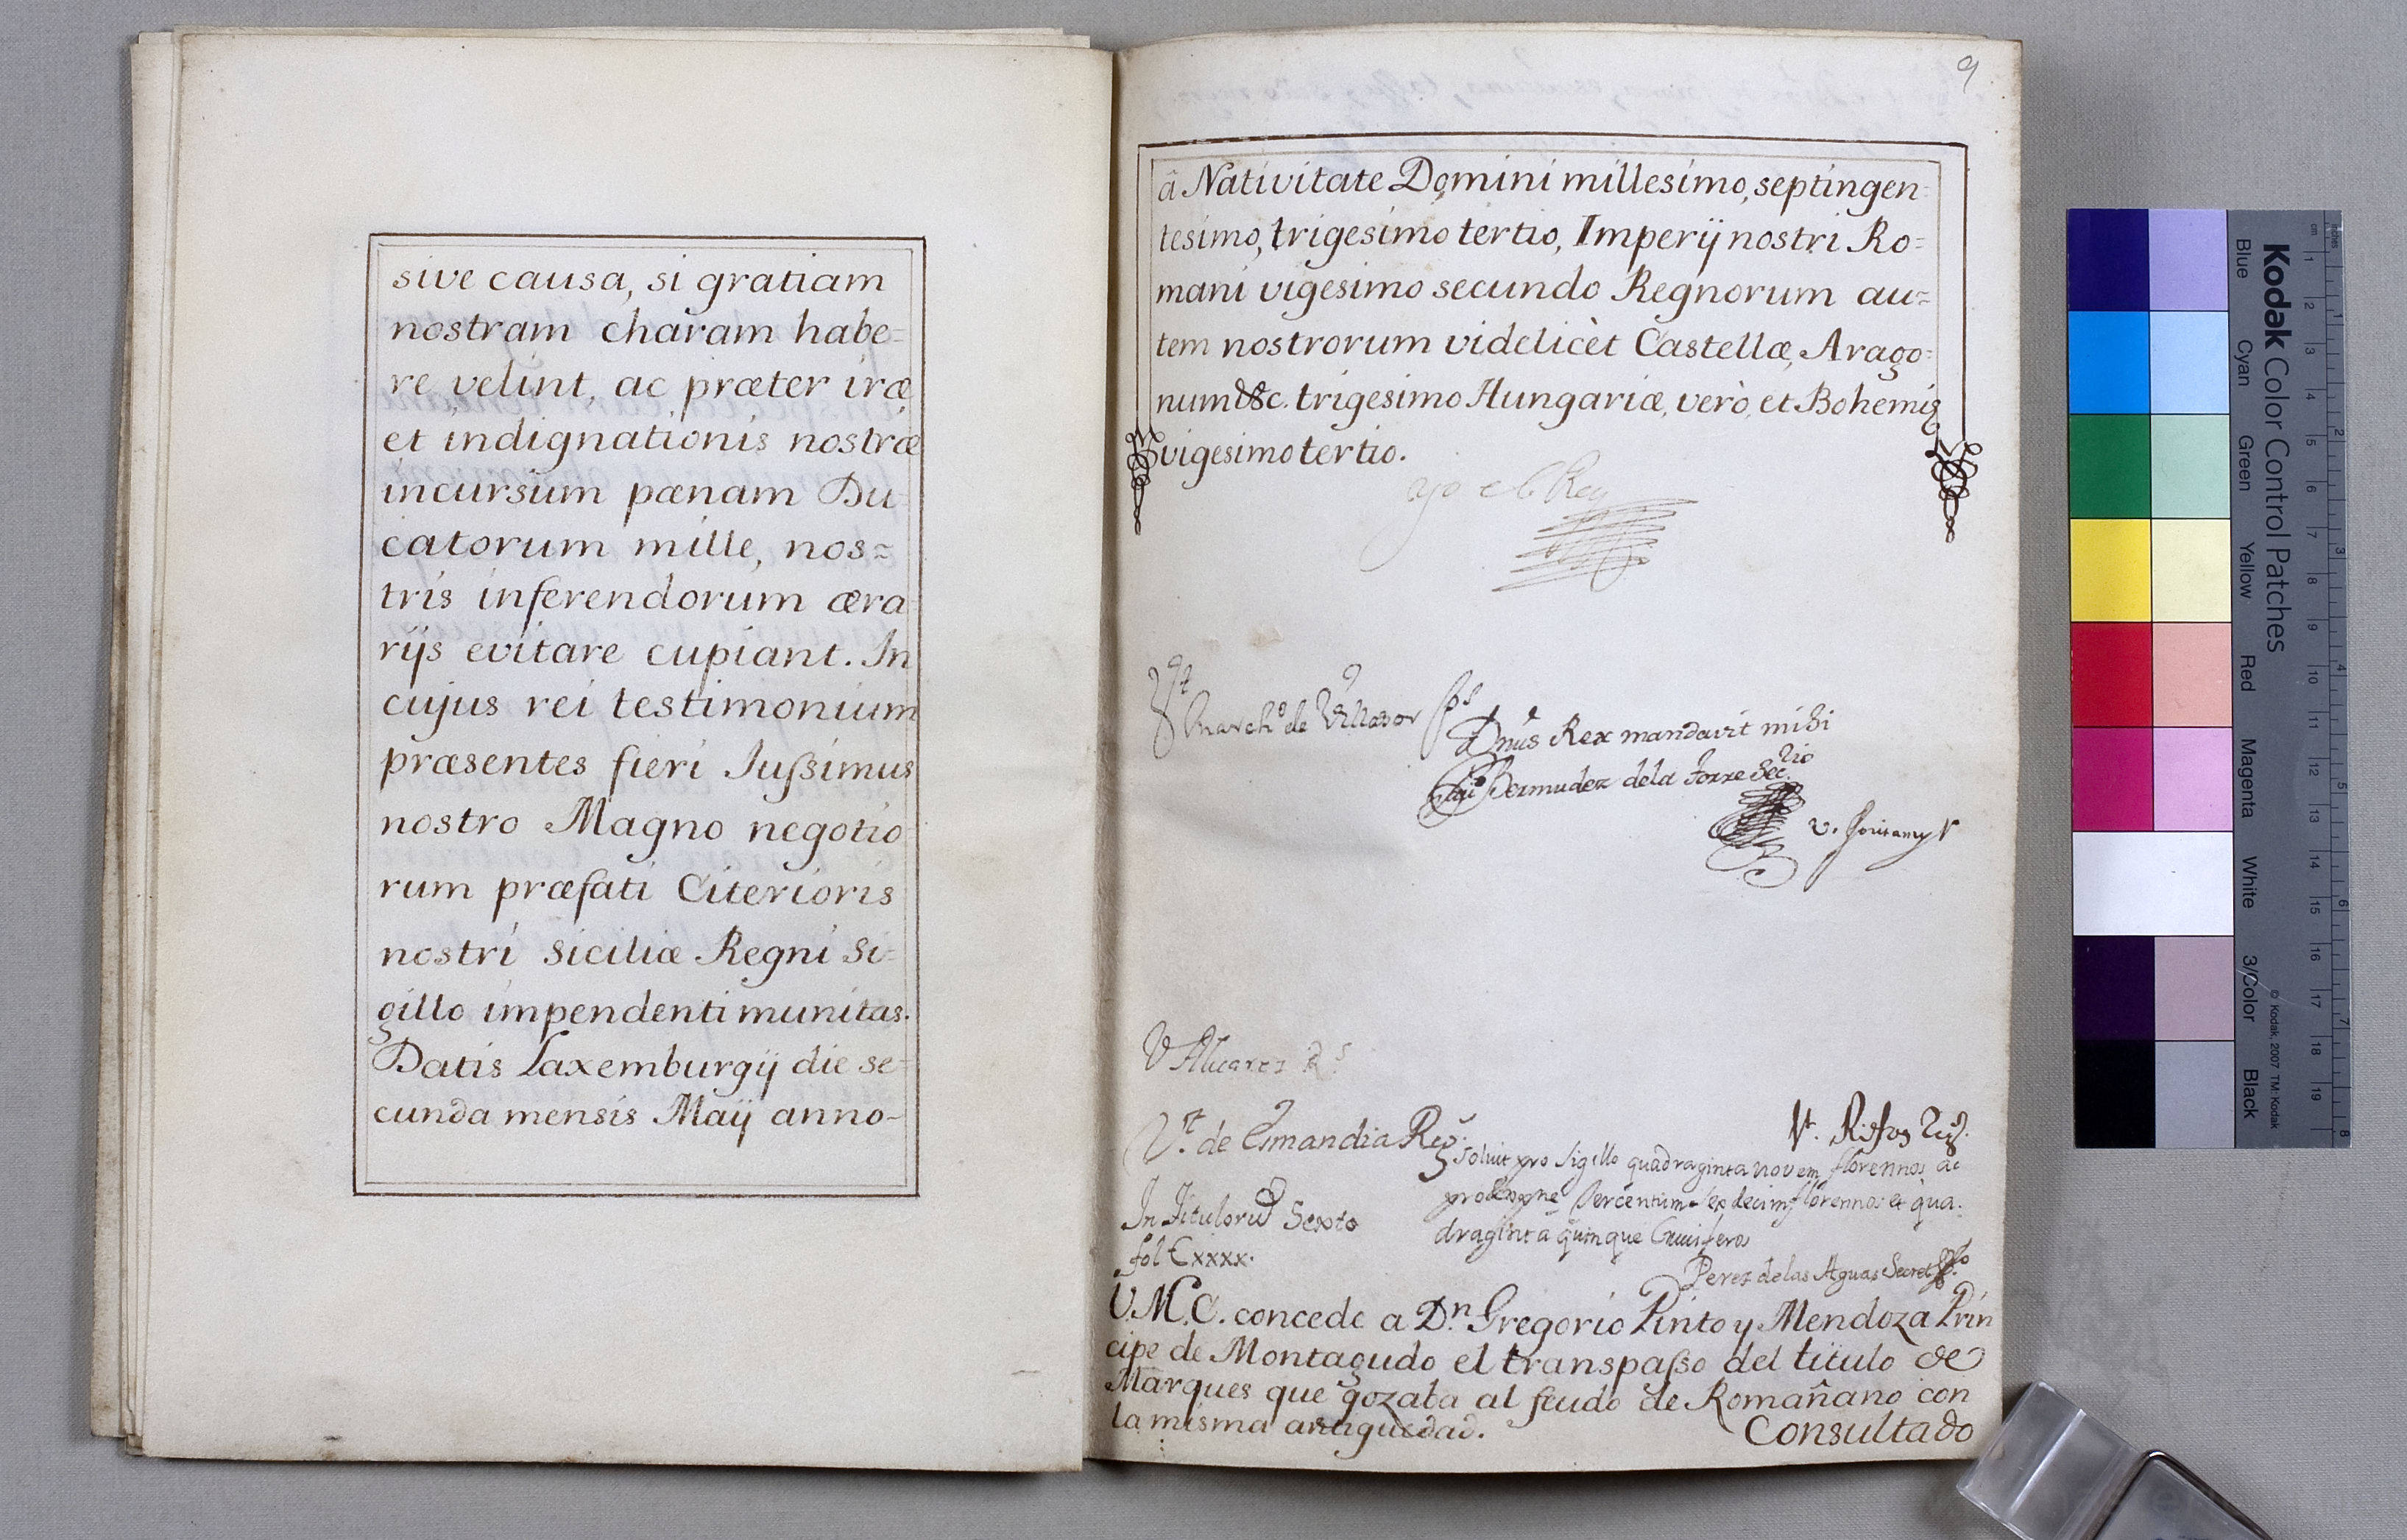 sive causa, si gratiam
nostram charam habe=
re velint, ac præter iræ
et indignationis nostræ
incursum pœnam Du=
catorum mille, nos=
tris inferendorum æra=
rijs evitare cupiant. In
cujus rei testimonium
præsentes fieri Jussimus
nostro Magno negotio=
rum præfati Citerioris
nostri Siciliæ Regni Si=
gillo impendenti munitas.
Datis Laxemburgij die se=
cunda mensis Maij anno-
9
â Nativitate Domini millesimo, septingen=
tesimo, trigesimo tertio, Imperij nostri Ro=
mani vigesimo secundo Regnorum au=
tem nostrorum videlicèt Castellæ, Arago=
num &c. trigesimo Hungariæ, verò, et Bohemiæ
vigesimo tertio.
yo el Rey
Vt March.o de Villasor Ps
Dnus Rex mandavit mihi
Bermudez dela Torre Secrio
V. Alvarez Rs
Vt. de Esmandia Reg.
Solvit pro Sigillo quadraginta novem florennos ac
sexdecim florennos et qua=
draginta quinque Cruciferos
Perez delas Aguas Secret
In Titulorũ Sexto
fol Cxxxx.
V.M.C. concede a Dn. Gregorio Pinto y Mendoza Prin
cipe de Montagudo el transpasso del titulo de
Marques que gozaba al feudo de Romañano con
la misma antiguedad.
Consultado
Kodak Color Control Patches
© Kodak, 2007 TM: Kodak
Blue Cyan Green Yellow Red Magenta White 3/Color Black
cm 1 2 3 4 5 6 7 8 9 10 11 12 13 14 15 16 17 18 19
inches 1 2 3 4 5 6 7 8